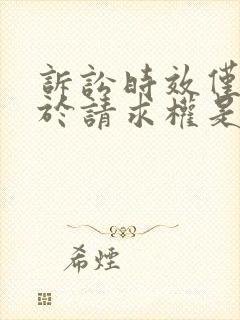 訴訟時效僅
於請求權是
希煙